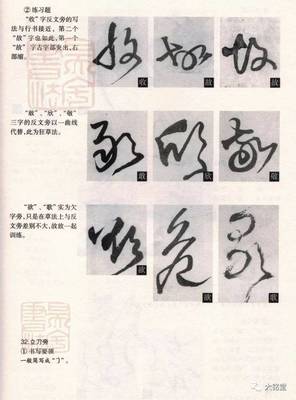 ② 练习题
“收”字反文旁的写
法与行书接近，第二个
“故”字也如此，第一个
“故”字古字部突出，右
部缩。
收
故
故
“敢”、“欣”、“敬”
三字的反文旁以一曲线
代替，此为狂草法。
敢
欣
敬
“欲”、“歌”实为欠
字旁，只是在草法上与反
文旁差别不大，故放一起
训练。
欲
欲
歌
32.立刀旁
① 书写要领
一般简写成“丁”。